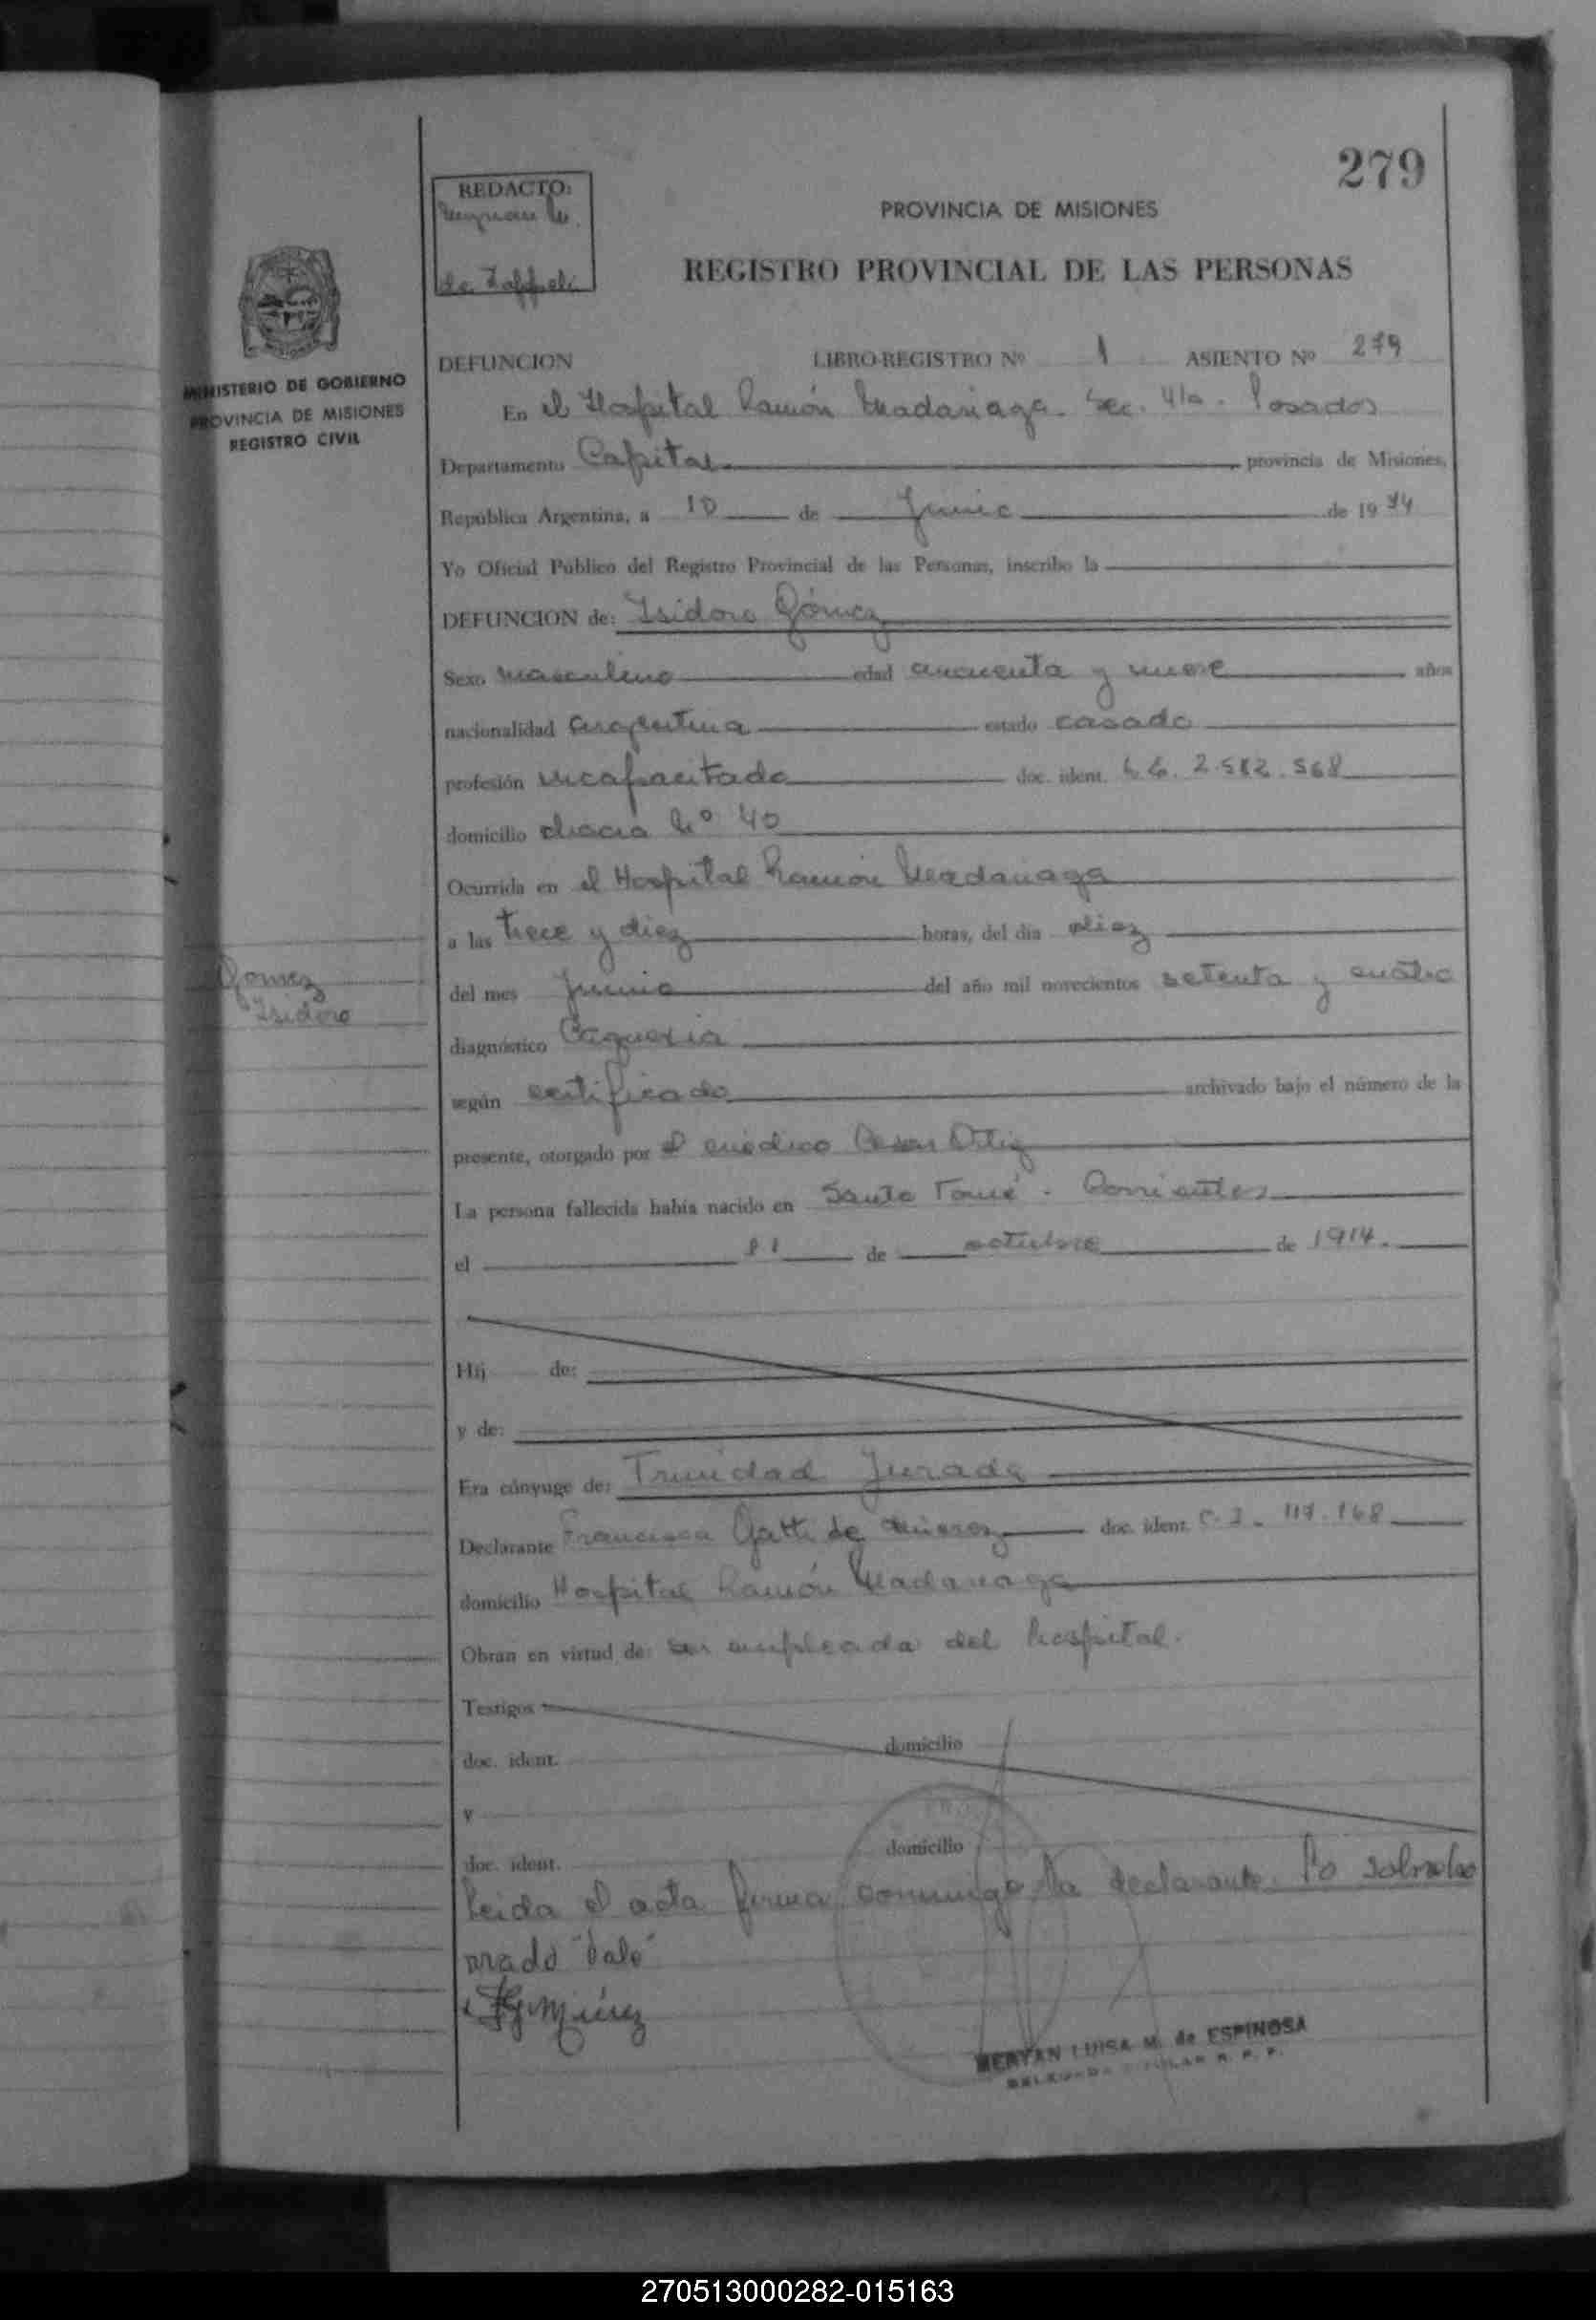 279
REDACTO:
de Zaffeli
PROVINCIA DE MISIONES
REGISTRO PROVINCIAL DE LAS PERSONAS
MINISTERIO DE GOBIERNO
PROVINCIA DE MISIONES
REGISTRO CIVIL
DEFUNCION LIBRO-REGISTRO Nº 1 ASIENTO Nº 279
En el Hospital Ramón Madariaga. Sec. 4ta. Posadas
Departamento Capital provincia de Misiones,
República Argentina, a 10 de Junio de 1974
Yo Oficial Público del Registro Provincial de las Personas, inscribo la
DEFUNCION de: Isidoro Gómez
Sexo masculino edad cincuenta y nueve años
nacionalidad argentina estado casado
profesión incapacitado doc. ident. 2.582.568
domicilio chacra Nº 40
Ocurrida en el Hospital Ramón Madariaga
a las trece y diez horas, del día diez
Gomez
Isidoro
del mes Junio del año mil novecientos setenta y cuatro
diagnóstico Caquexia
según certificado archivado bajo el número de la
presente, otorgado por el médico Cesar Ortiz
La persona fallecida había nacido en Santo Tomé - Corrientes
el 11 de octubre de 1914.
Hij de:
y de:
Era cónyuge de: Trinidad Jurado
Declarante Francisca Gatti de doc. ident. C.I. 117.168
domicilio Hospital Ramón Madariaga
Obran en virtud de: ser empleada del hospital.
Testigos
doc. ident. domicilio
y
doc. ident. domicilio
Leida el acta firma conmigo la declarante. Lo sobrebo
rrado "Vale"
MERYAN LUISA M. de ESPINOSA
DELEGADA TITULAR R. P. P.
270513000282-015163